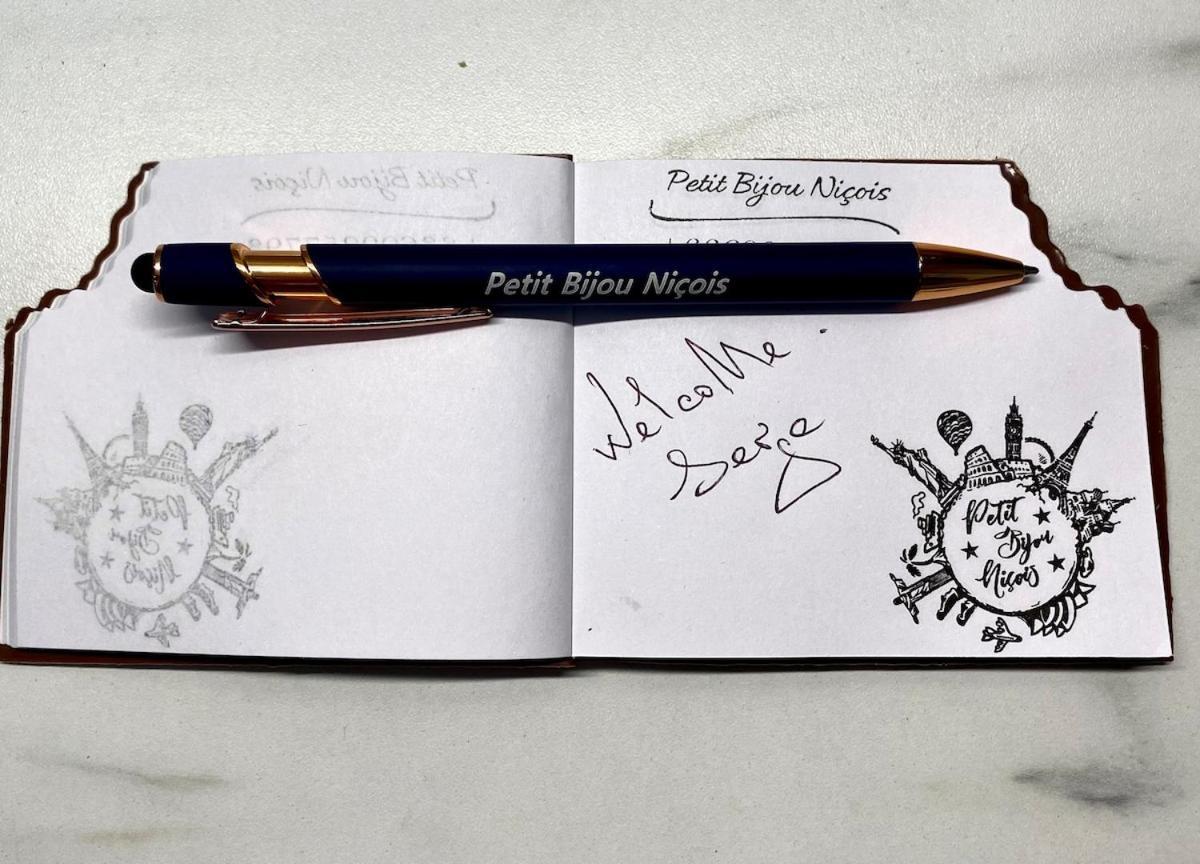 Petit Bijou Niçois
Petit Bijou Niçois
Welcome
Serge
Petit
Bijou
Niçois